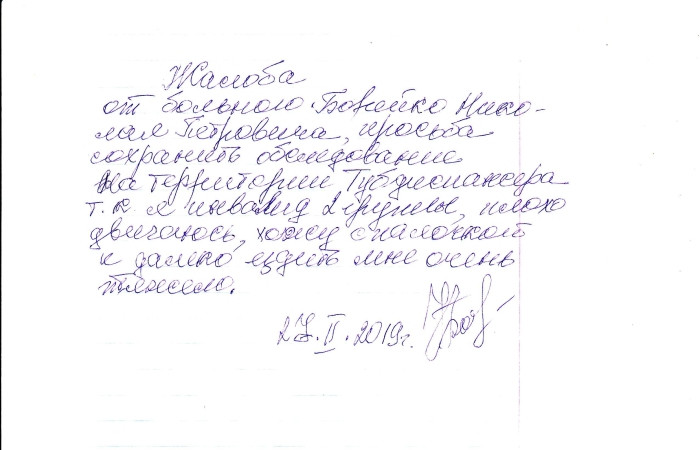 Жалоба
от больного Бовейко Нико-
лая Петровича, просьба
сохранить обследование
на территории Тубдиспансера
т. к. я инвалид 2 группы, плохо
двигаюсь, хожу с палочкой
и далеко ездить мне очень
тяжело.
27. II. 2019г.